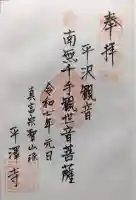 奉拝
平沢観音
南無千手観世音菩薩
令和七年元日
真言宗智山派
平澤寺